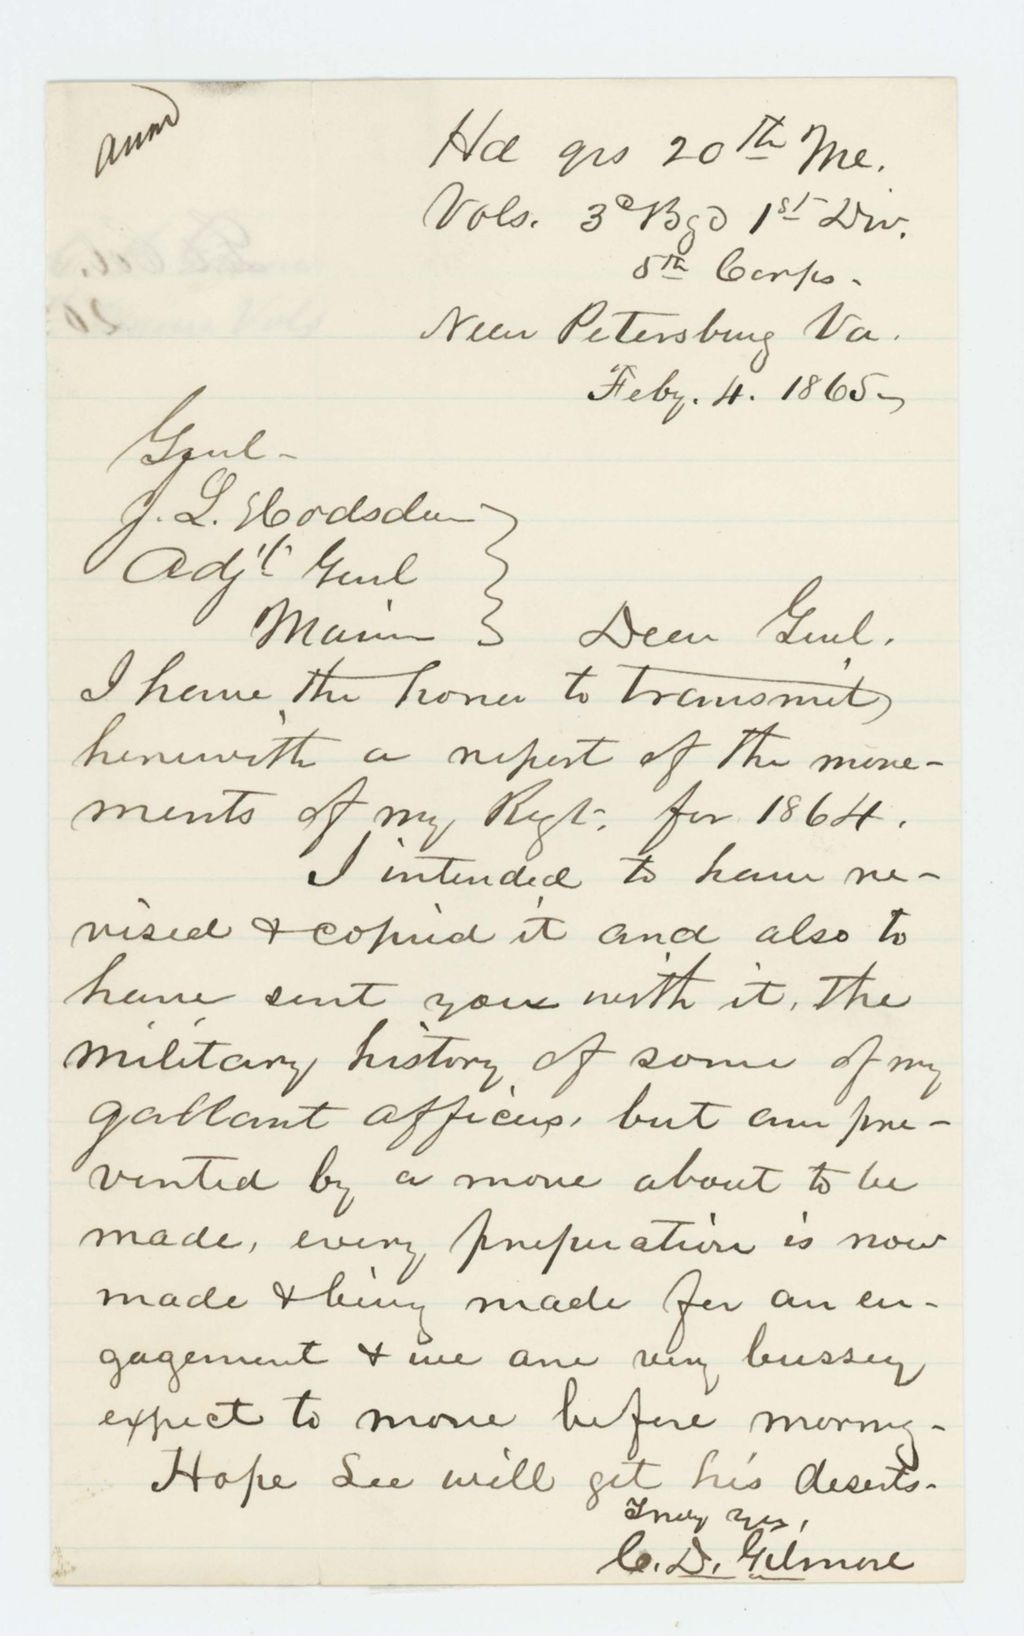 Hd qrs 20th Me.
Vols. 3d Bgd 1st Div.
5th Corps.
Near Petersburg Va.
Feby. 4. 1865
Genl-
J. L. Hodsdon
Adjt Genl
Maine
Dear Genl.
I have the honor to transmit
herewith a report of the move-
ments of my Regt. for 1864.
I intended to have re-
vised & copied it and also to
have sent you with it, the
military history of some of my
gallant officers, but am pre-
vented by a move about to be
made, every preperation is now
made & being made for an en-
gagement & we are very bussey
expect to move before morning-
Hope Lee will get his deserts-
Truly yrs,
C. D. Gilmore